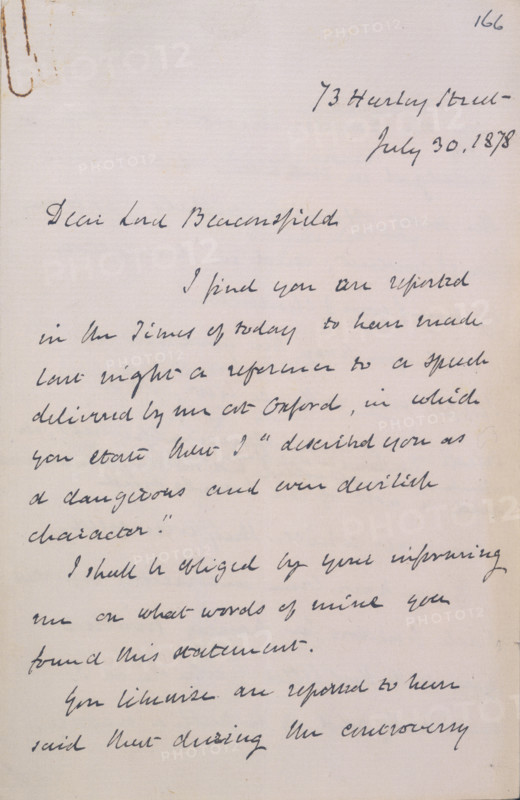 166
73 Harley Street
July 30. 1878
Dear Lord Beaconsfield
I find you are reported
in the Times of today to have made
last night a reference to a speech
delivered by me at Oxford, in which
you state that I "described you as
a dangerous and even devilish
character."
I shall be obliged by your informing
me on what words of mine you
found this statement.
You likewise are reported to have
said that during the controversy
PHOTO12